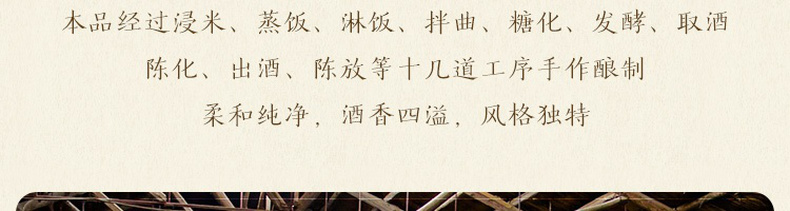 本品经过浸米、蒸饭、淋饭、拌曲、糖化、发酵、取酒
陈化、出酒、陈放等十几道工序手作酿制
柔和纯净，酒香四溢，风格独特